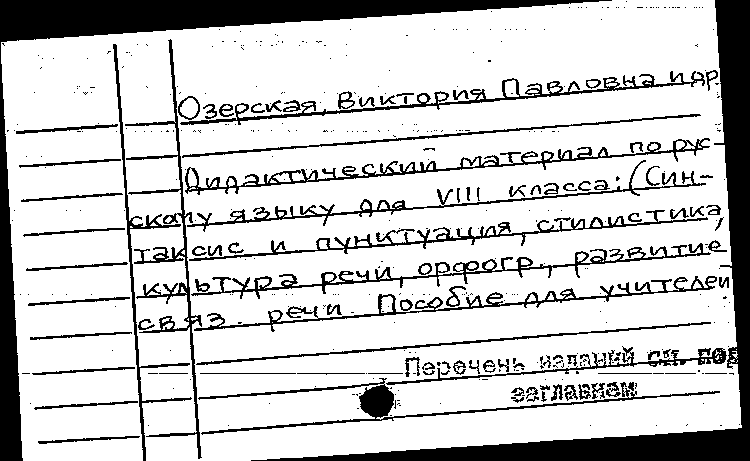 Озерская, Виктория Павловна и др.
Дидактический материал по рус-
скому языку для VIII класса: (Син-
таксис и пунктуация, стилистика,
культура речи, орфогр., развитие
связ. речи. Пособие для учителей
Перечень изданий см. под
заглавием